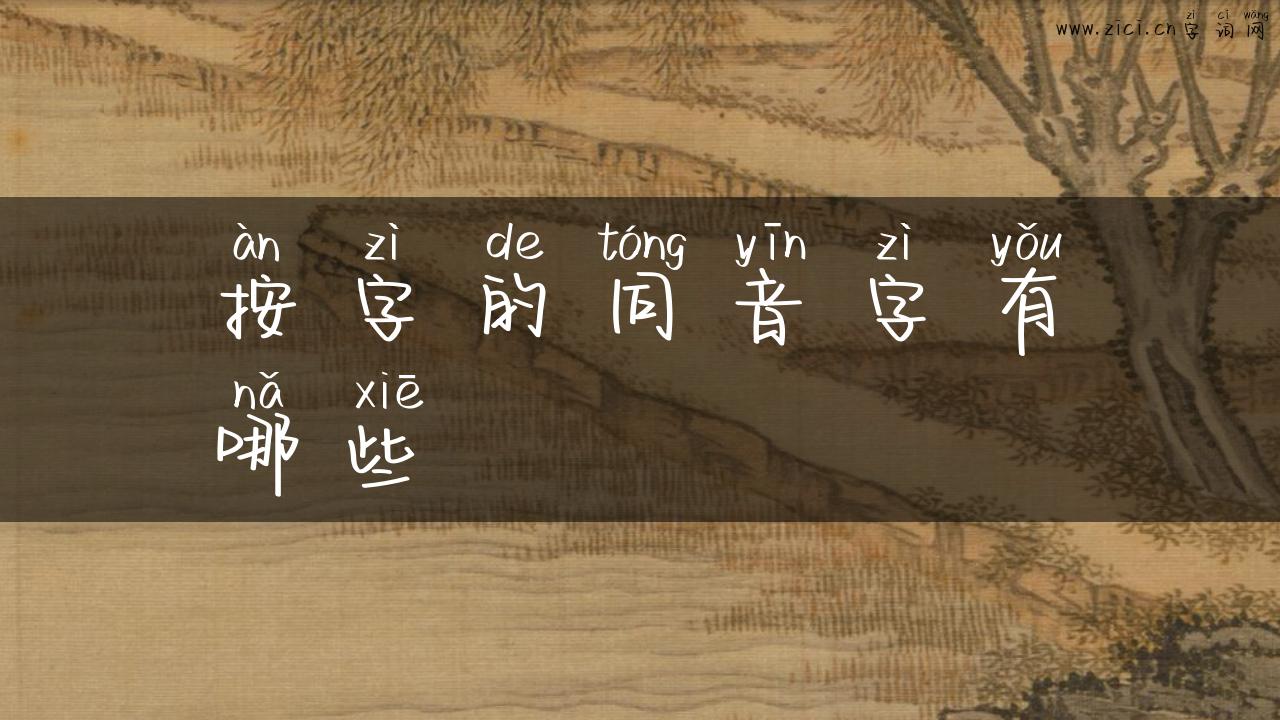 zì cí wǎng
www.zici.cn 字 词 网
àn zì de tóng yīn zì yǒu
按 字 的 同 音 字 有
nǎ xiē
哪 些